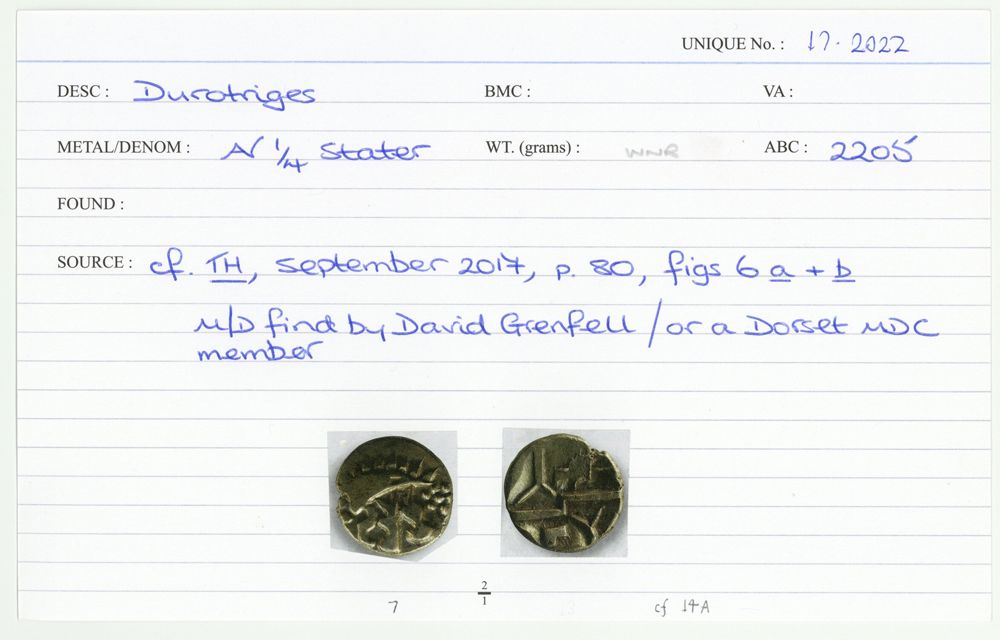 UNIQUE No. : 17. 2022
DESC : Durotriges BMC : VA :
METAL/DENOM : AV 1/4 stater WT. (grams) : WNR ABC : 2205
FOUND :
SOURCE : cf. TH, september 2017, p. 80, figs 6 a + b
M/D find by David Grenfell / or a Dorset MDC
member
2/1
7 cf 14A